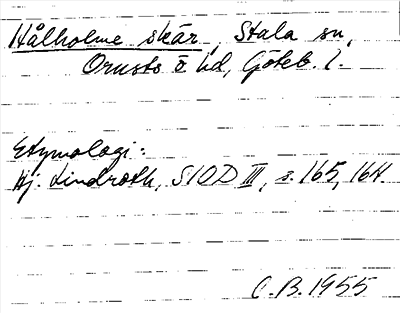 Hålholme skär, Stala sn,
Orusts ö hd, Göteb. l.
Etymologi:
Hj. Lindroth, SIOD III, s. 165, 164.
C.B. 1955